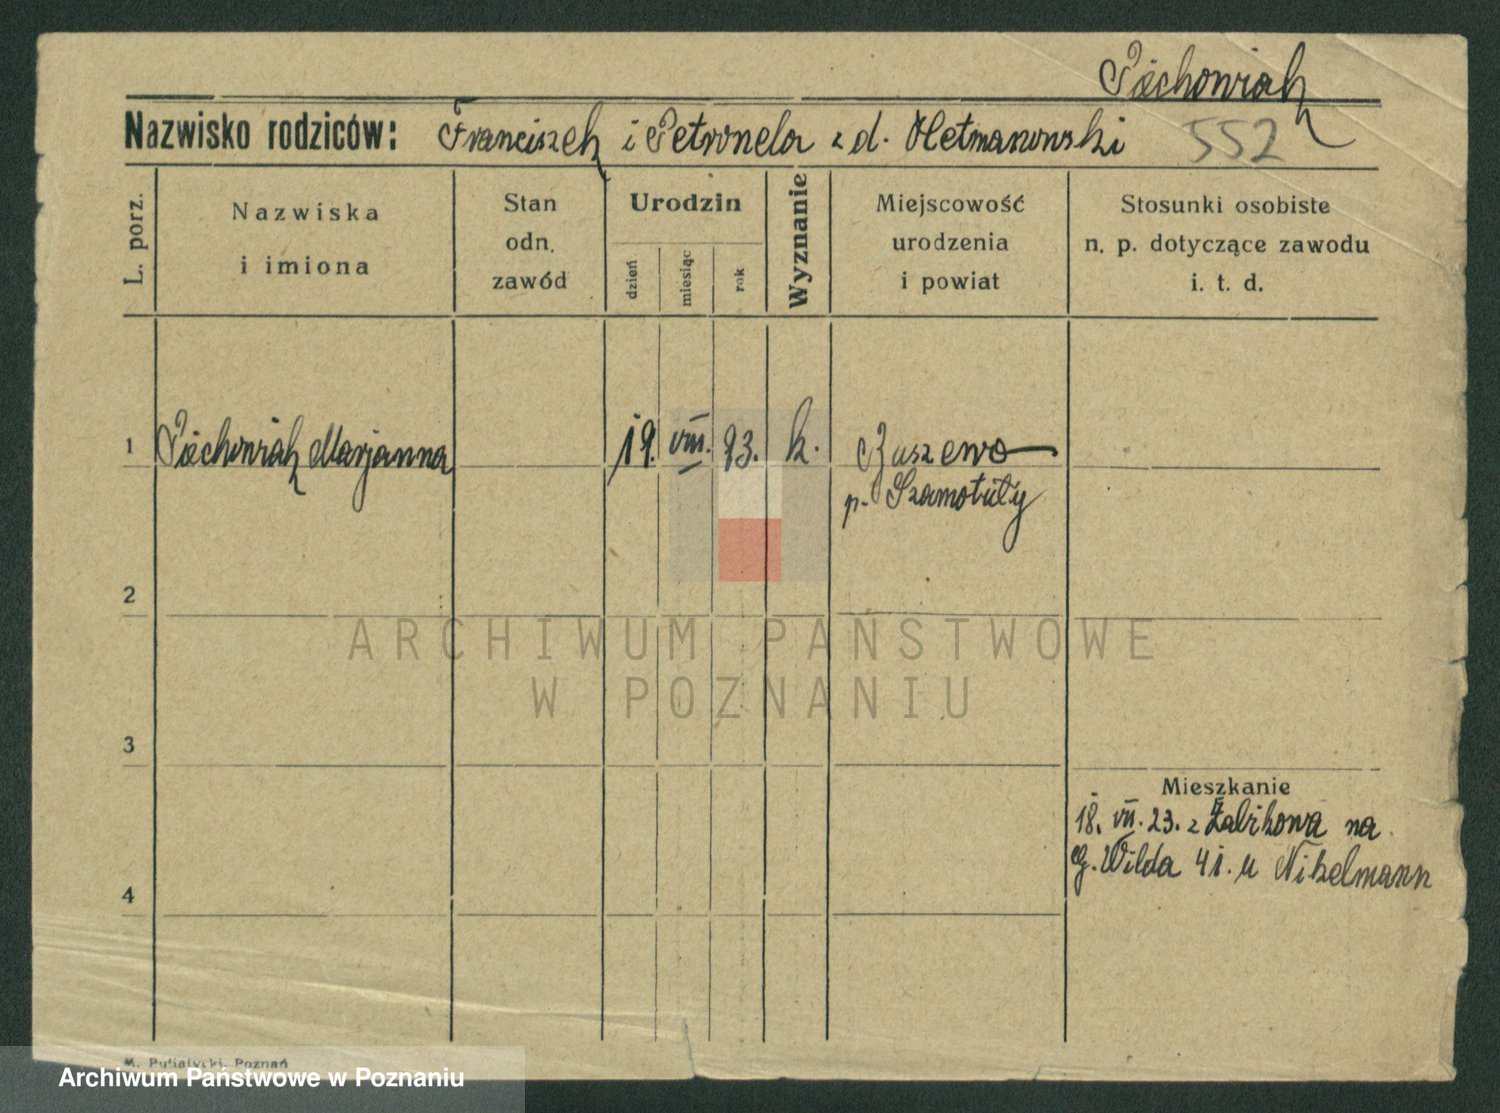 Piechowiak
Nazwisko rodziców: Franciszek i Petronela z d. Hetmanowski 552
L. porz.
Nazwiska
i imiona
Stan
odn.
zawód
Urodzin
dzień
miesiąc
rok
Wyznanie
Miejscowość
urodzenia
i powiat
Stosunki osobiste
n. p. dotyczące zawodu
i. t. d.
1 Piechowiak Marjanna 19. VIII. 93. k. Buszewo
p. Szamotuły
2
ARCHIWUM PAŃSTWOWE
W POZNANIU
3
Mieszkanie
18. VII. 23. z Żabikowa na
G. Wilda 41. u Nikelmann
4
M. Putiatycki, Poznań
Archiwum Państwowe w Poznaniu